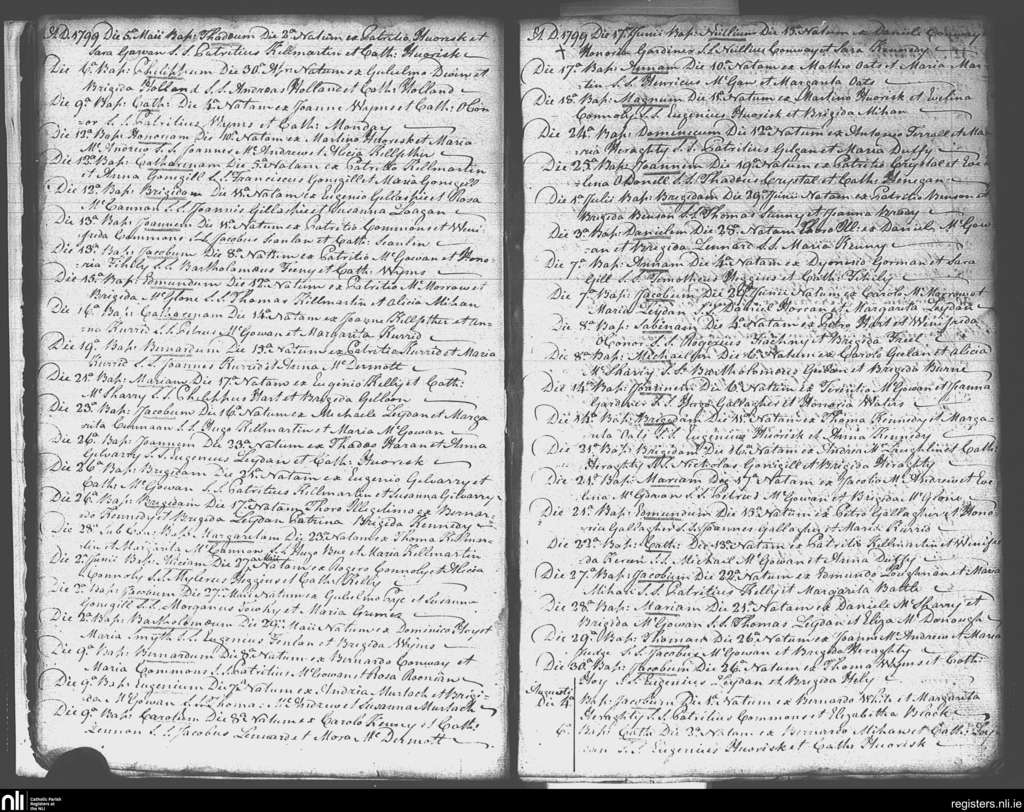 A.D. 1799 Die 5ª Maii Bap: Thadeum Die 2ª Natum ex Patritio Huorisk et
Sara Gawan S.S. Patritius Killmartin et Cath: Huorisk
Die 6ª Bap: Philippum Die 30ª Apr: Natum ex Gulielmo Devin et
Brigida Holland S.S. Andrea Holland et Cath: Holland
Die 9ª Bap: Cath: Die 4ª Natam ex Joanne Wyms et Cath: O'Con-
nor S.S. Patritius Wyms et Cath: Monday
Die 12ª Bap: Honoriam Die 10ª Natam ex Martino Huorisk et Maria
Mc Andrew S.S. Joannes Mc Andrew et Alicia Killpthir
Die 12ª Bap: Catharenam Die 5ª Natam ex Patritio Killmartin
et Anna Gonigill S.S. Franciscus Gonigill et Maria Gonigill
Die 12ª Bap: Brigidam Die 11ª Natam ex Eugenio Gillaspie et Rosa
Mc Cannan S.S. Joannis Gillaspie et Susanna Loagan
Die 13ª Bap: Joannem Die 11ª Natum ex Patritio Commons et Wini-
frida Commons S.S. Jacobus Scanlan et Cath: Scanlin
Die 13ª Bap: Jacobum Die 8ª Natum ex Patritio Mc Gowan et Hono-
ria Fihily S.S. Bartholamaus Feeny et Cath: Wyms
Die 15ª Bap: Edmundum Die 12ª Natum ex Patritio Mc Morrow et
Brigida Mc Glone S.S. Thomas Killmartin et Alicia Mihan
Die 16ª Bap: Catharenam Die 14ª Natam ex Joanne Killfether et An-
na Kurrid S.S. Petrus Mc Gowan et Margarita Kurrid
Die 19ª Bap: Bernardum Die 13ª Natum ex Patritio Kurrid et Maria
Kurrid S.S. Joannes Kurrid et Anna Mc Dermott
Die 21ª Bap: Mariam Die 17ª Natam ex Eugenio Kelly et Cath:
Mc Sharry S.S. Philippus Hart et Brigida Gillen
Die 23ª Bap: Jacobum Die 16ª Natum ex Michaele Leydan et Marga-
rita Commaan S.S. Hugo Killmartin et Maria Mc Gowan
Die 26ª Bap: Joannem Die 23ª Natum ex Thadeo Haran et Anna
Gilvarry S.S. Eugenius Leydan et Cath: Huorisk
Die 26ª Bap: Brigidam Die 24ª Natam ex Eugenio Gilvarry et
Cath: Mc Gowan S.S. Patritius Killmartin et Susanna Gilvarry
Die 26ª Bap: Brigidam Die 17ª Natam Thoro Illegitimo ex Bernar-
do Kennidy et Brigida Leydan Patrina Brigida Kennedy
Die 28ª Sub Con: Bap: Margaritam Die 23ª Natam ex Thoma Killmar-
tin et Margarita Mc Cannon S.S. Hugo Bue et Maria Killmartin
Die 2ª Junii Bap: Aliciam Die 27ª Maii Natam ex Rogero Connoly et Alicia
Connoly S.S. Mylerus Higgins et Cath: Kelly
Die 2ª Bap: Jacobum Die 27ª Maii Natum ex Gulielmo Frye et Susanna
Gonigill S.S. Morganus Towhy et Maria Grimes
Die 2ª Bap: Bartholomeum Die 29ª Maii Natum ex Dominico Pryor et
Maria Smyth S.S. Eugenius Finlan et Brigida Wyms
Die 9ª Bap: Bernardum Die 8ª Natum ex Bernardo Conway et
Maria Commons S.S. Patritius Mc Gowan et Rosa Roonian
Die 9ª Bap: Eugenium Die 7ª Natum ex Andria Murtach et Brigi-
da Mc Gowan S.S. Thoma: Mc Andrew et Susanna Murtach
Die 9ª Bap: Carolam Die 8ª Natum ex Carolo Keuny et Cath:
Lennon S.S. Jacobus Lennard et Mora Mc Dermott
A.D. 1799 Die 17ª Junii Bap: Nillium Die 15ª Natum ex Daniele Conway et
Honoria Gardiner S.S. Nillius Conway et Sara Kennedy
Die 17ª Bap: Annam Die 10ª Natam ex Mathio Oats et Maria Mar-
tin S.S. Henricus Mc Gan et Margarita Oats
Die 18ª Bap: Magnum Die 11ª Natum ex Martino Huorisk et Evelina
Connoly S.S. Eugenius Huorisk et Brigida Mihan
Die 24ª Bap: Dominicum Die 12ª Natum ex Antonio Forrall et Ma-
ria Heraghty S.S. Patritius Gilgan et Maria Duffy
Die 25ª Bap: Joannem Die 19ª Natum ex Patritio Crystal et Eve-
lina O'Donell S.S. Thadeus Crystal et Cath: Henegan
Die 1ª Julii Bap: Brigidam Die 29ª Junii Natam ex Patritio Benson et
Brigida Benson S.S. Thomas Tunny et Joanna Brady
Die 3ª Bap: Danielem Die 28ª Natum Thoro Ill: ex Daniele Mc Gow-
an et Brigida Lennard S.S. Maria Kenny
Die 7ª Bap: Annam Die 4ª Natam ex Dyonisio Gorman et Sara
Gill S.S. Timotheus Higgins et Cath: Fihily
Die 7ª Bap: Jacobum Die 29ª Junii Natum ex Carolo Mc Morrow et
Maria Leydan S.S. Daniel Horoan et Margarita Leydan
Die 8ª Bap: Sabinam Die 4ª Natam ex Petro Hart et Winifrida
O'Conor S.S. Rogerius Fachny et Brigida Friel
Die 8ª Bap: Michaelem Die 6ª Natum ex Carolo Gillan et Alicia
Mc Sharry S.S. Bartholomeus Gillan et Brigida Barrie
Die 14ª Bap: Joannem Die 6ª Natum ex Terentio Mc Gowan et Joanna
Gardiner S.S. Hugo Gallagher et Honoria Waters
Die 14ª Bap: Brigidam Die 11ª Natam ex Thoma Kennedy et Marga-
rita Oats S.S. Eugenius Huorisk et Anna Kennedy
Die 21ª Bap: Brigidam Die 16ª Natam ex Andrea Mc Laughlin et Cath:
Heraghty S.S. Nickolas Gonigill et Brigida Heraghty
Die 21ª Bap: Mariam Die 17ª Natam ex Jacobo Mc Andrew et Eve-
lina Mc Gowan S.S. Petrus Mc Gowan et Brigida Mc Glone
Die 21ª Bap: Edmundum Die 15ª Natum ex Petro Gallagher et Hono-
ria Gallagher S.S. Joannes Gallagher et Maria Kurrid
Die 22ª Bap: Cath: Die 18ª Natam ex Patritio Killmartin et Winifri-
da Keevan S.S. Michael Mc Gowan et Anna Duffy
Die 27ª Bap: Jacobum Die 22ª Natum ex Edmundo Loughanan et Maria
Mihan S.S. Patritius Kelly et Margarita Battle
Die 28ª Bap: Mariam Die 21ª Natam ex Daniele Mc Sharry et
Brigida Mc Gowan S.S. Thomas Leydan et Eliza Mc Donough
Die 29ª Bap: Thomam Die 26ª Natum ex Joanne Mc Andrew et Maria
Judge S.S. Jacobus Mc Gowan et Brigida Heraghty
Die 30ª Bap: Jacobum Die 26ª Natum ex Thoma Wyms et Cath:
Hoy S.S. Eugenius Leydan et Brigida Hely
Augusti
Die 4ª Bap: Jacobum Die 1ª Natum ex Bernardo White et Margarita
Heraghty S.S. Patritius Commons et Elizabetha Black
6ª Bap: Cath: Die 2ª Natam ex Bernardo Mihan et Cath:
S.S. Eugenius Huorisk et Cath: Huorisk
nli
Catholic Parish
Registers at
the NLI
registers.nli.ie